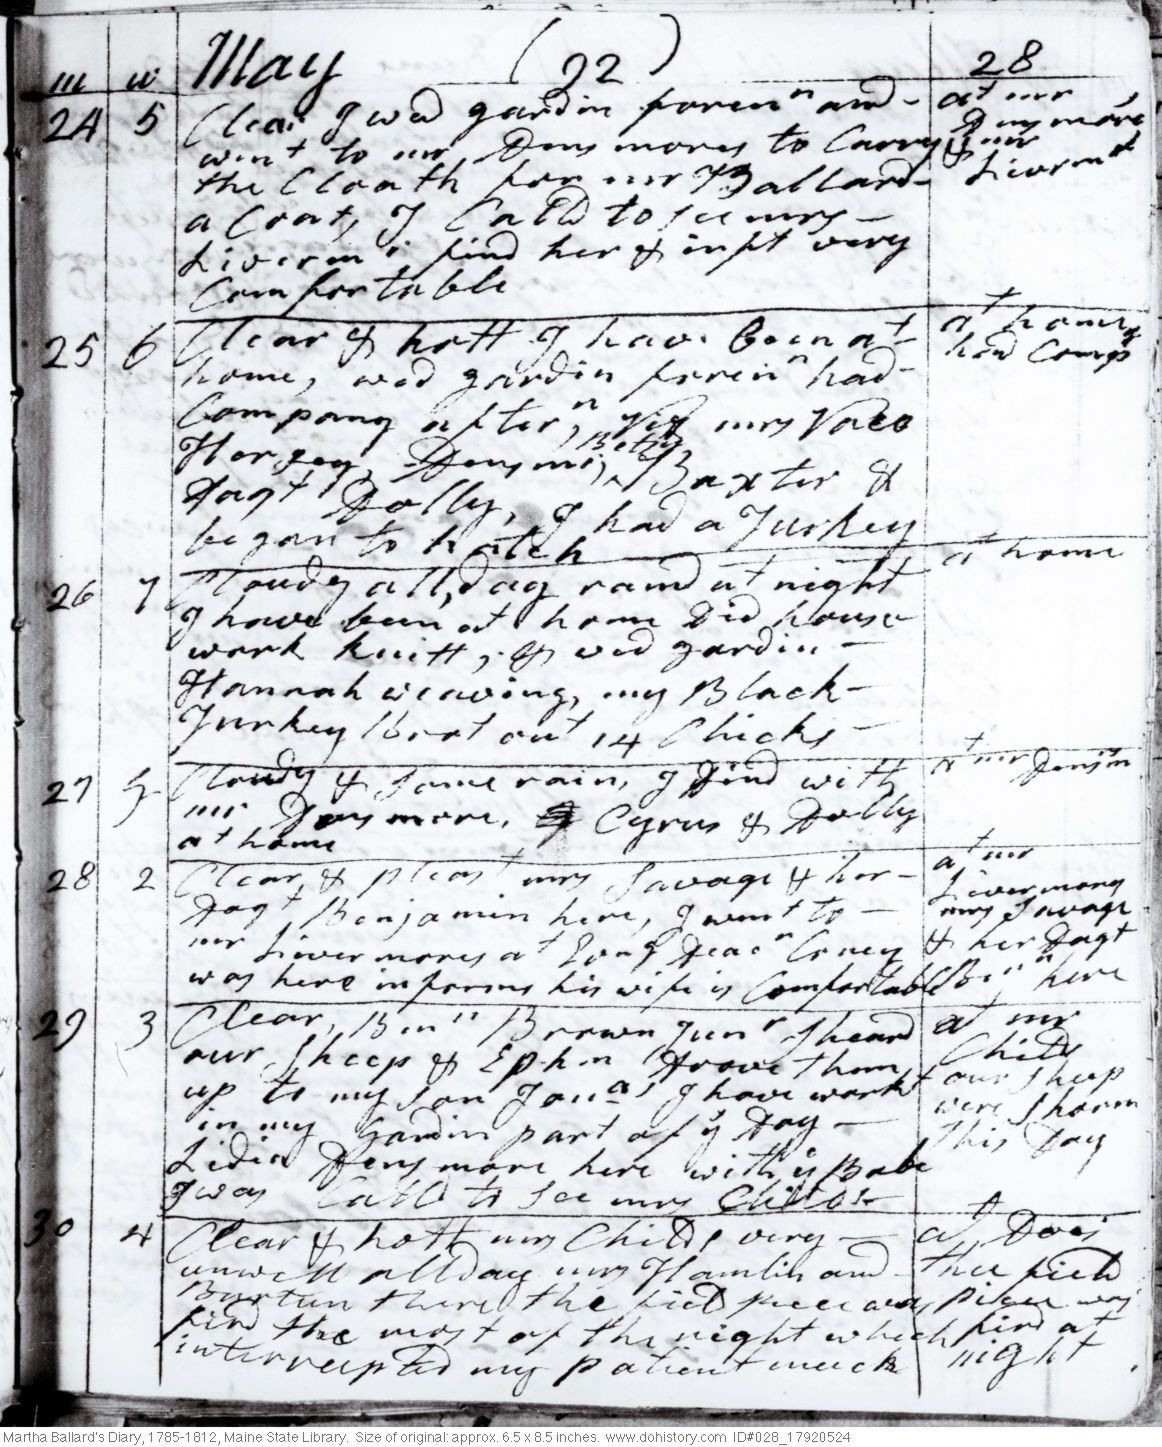 m w May (92) 28
24 5 Clear I wed gardin foren.n and - at mr
went to mr Densmores to Carry Densmore
the Cloath for mr Ballard - & mr Liverm.r
a Coat, I Calld to see mrs -
Liverm find her & inft very
Comfortable
25 6 Clear & hott I have been at at home
home, wed gardin foren.n had- had Comp
Company after.n, viz mrs Vaco
Hersey, Densmr, Betsy Baxter &
Dagt Dolly, I had a Turkey
began to hatch
26 7 Cloudy all day raind at night at home
I have been at home Did house
work knitt, & wed gardin -
Hannah weaving, my Black -
Turkey brot out 14 Chicks -
27 G Cloudy & some rain, I Dind with at mr Densm
mr Densmore, Cyrus & Dolly
at home
28 2 Clear, & pleast mrs Savage & her - at mr
Dagt, Benjamin here, I went to - Livermores
mr Livermores at Evng Deacn Coney mrs Savage & her Dagt
was here informs his wife is Comfortable Bn here
29 3 Clear, Benn Brown Junr Sheard at mr
our Sheep & Ephm Drove them Childs
up to my son Jonas I have workt our sheep
in my Gardin part of ye Day - were shorn
Lidia Densmore here with ye Babe this Day
I was Calld to see mrs Childs -
30 4 Clear & hott mrs Childs very - at Do's
unwell all day mrs Hamlin and - thee field
Burtun there the field peece was piece was
fird the most of the night which fird at
interrupted my patient much night
Martha Ballard's Diary, 1785-1812, Maine State Library. Size of original: approx. 6.5 x 8.5 inches. www.dohistory.com ID#028_17920524